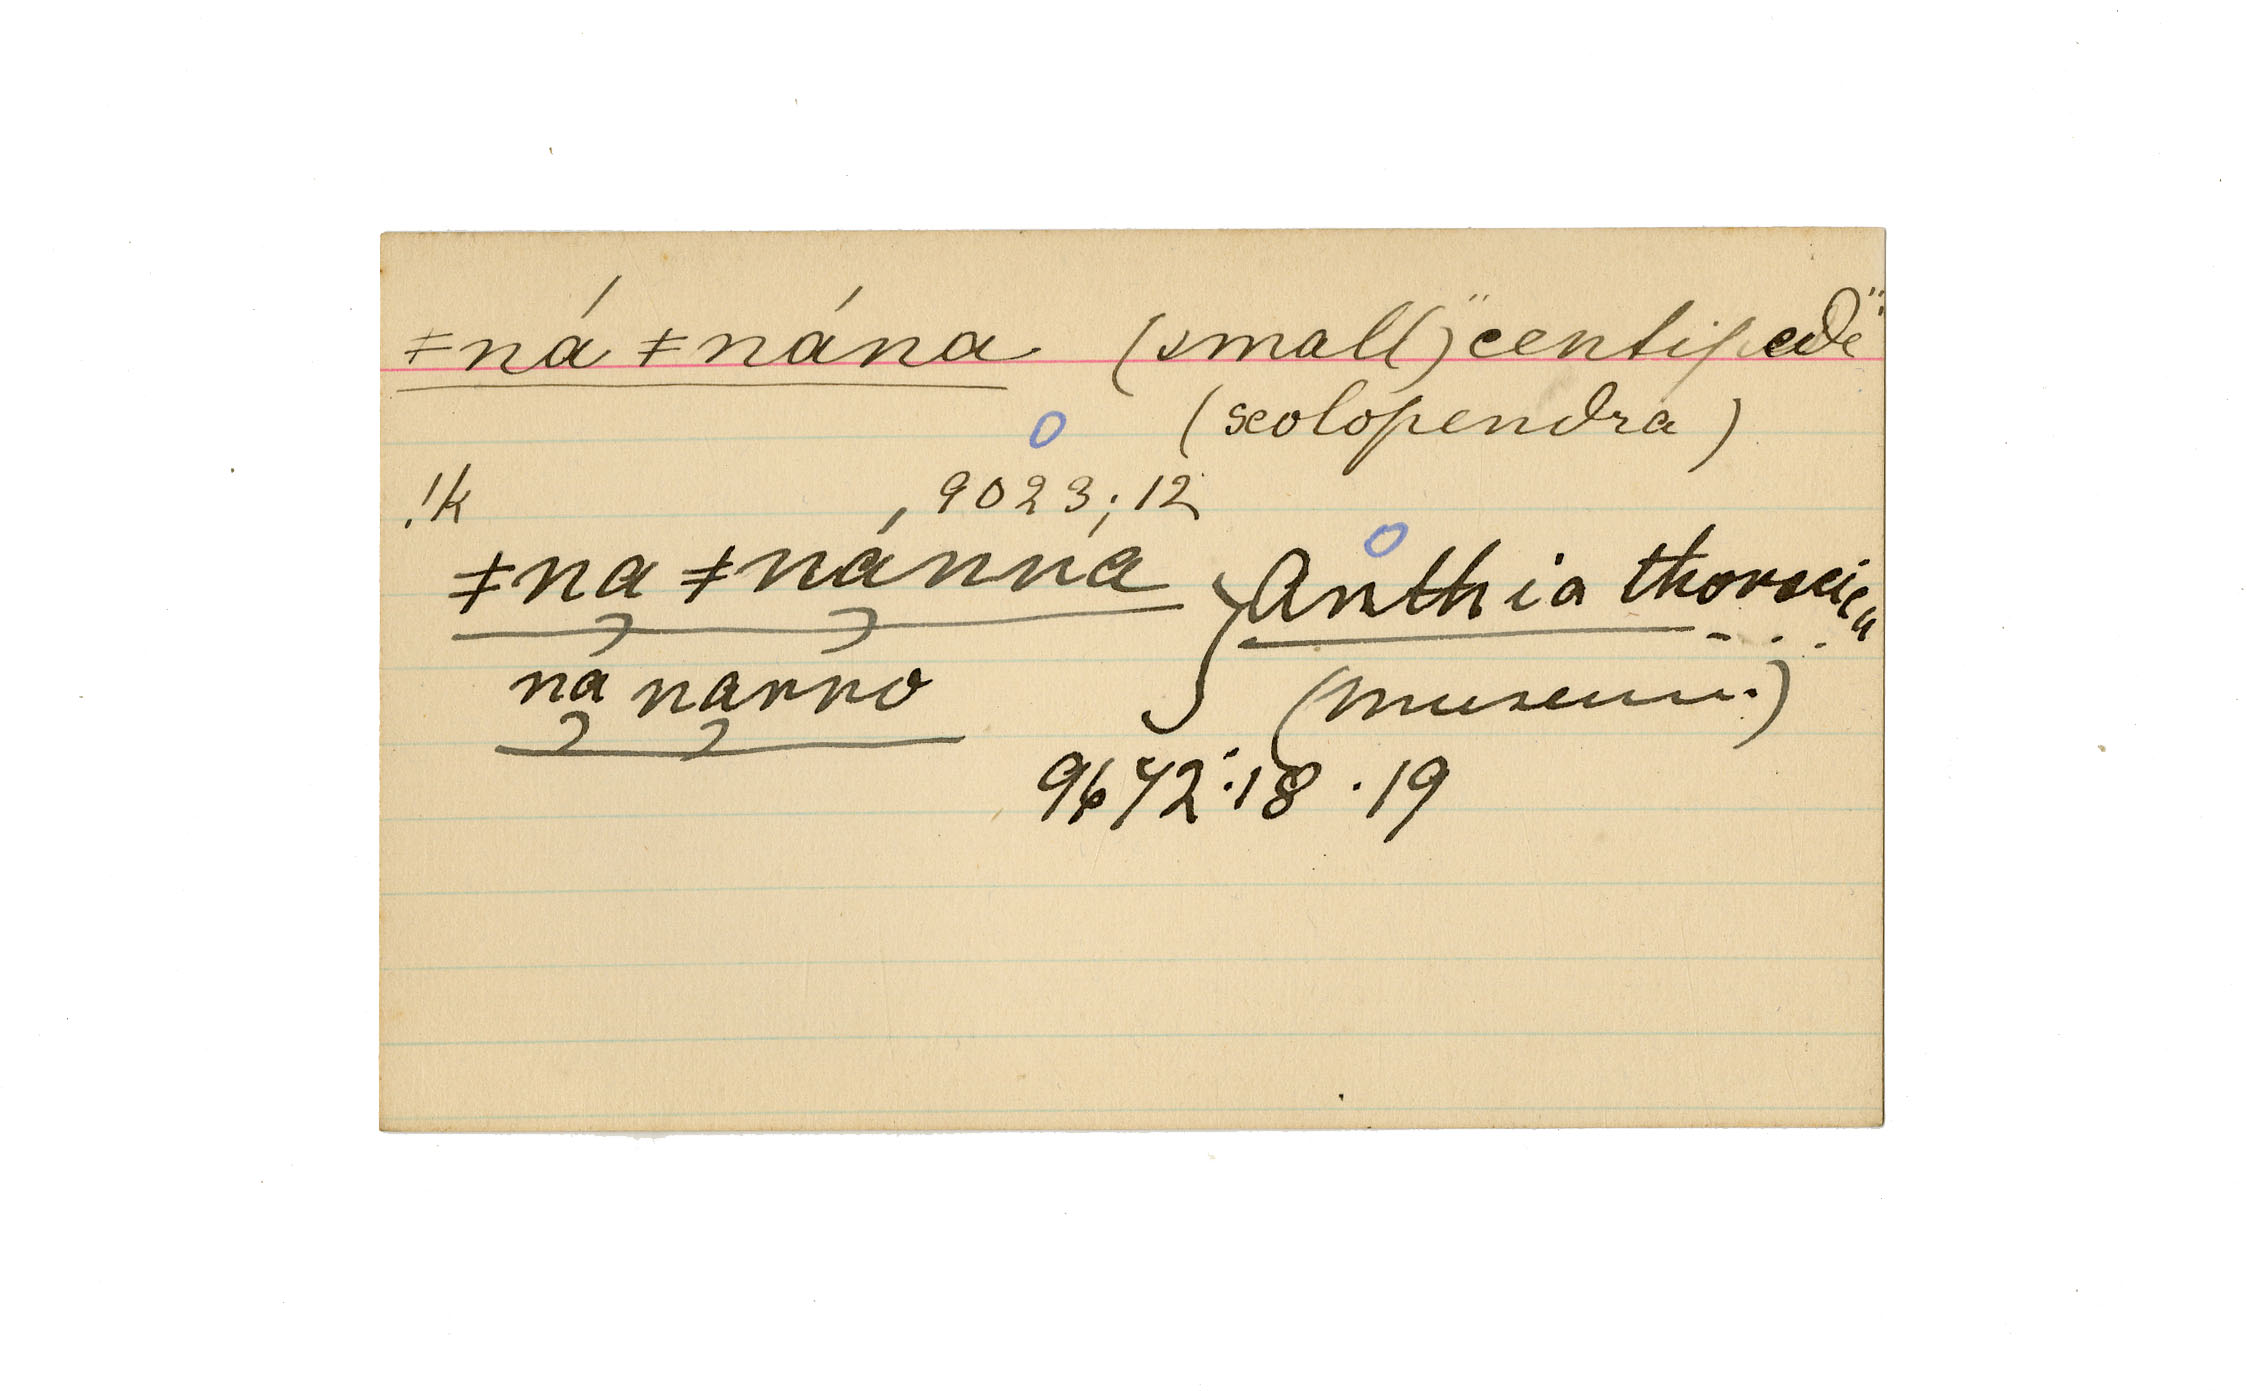 ≠ná ≠nána (small) "centipede"
(scolopendra)
!k , 9023; 12
≠na ≠nánna } Anthia thoracica
na narro (museum.)
9672:18.19